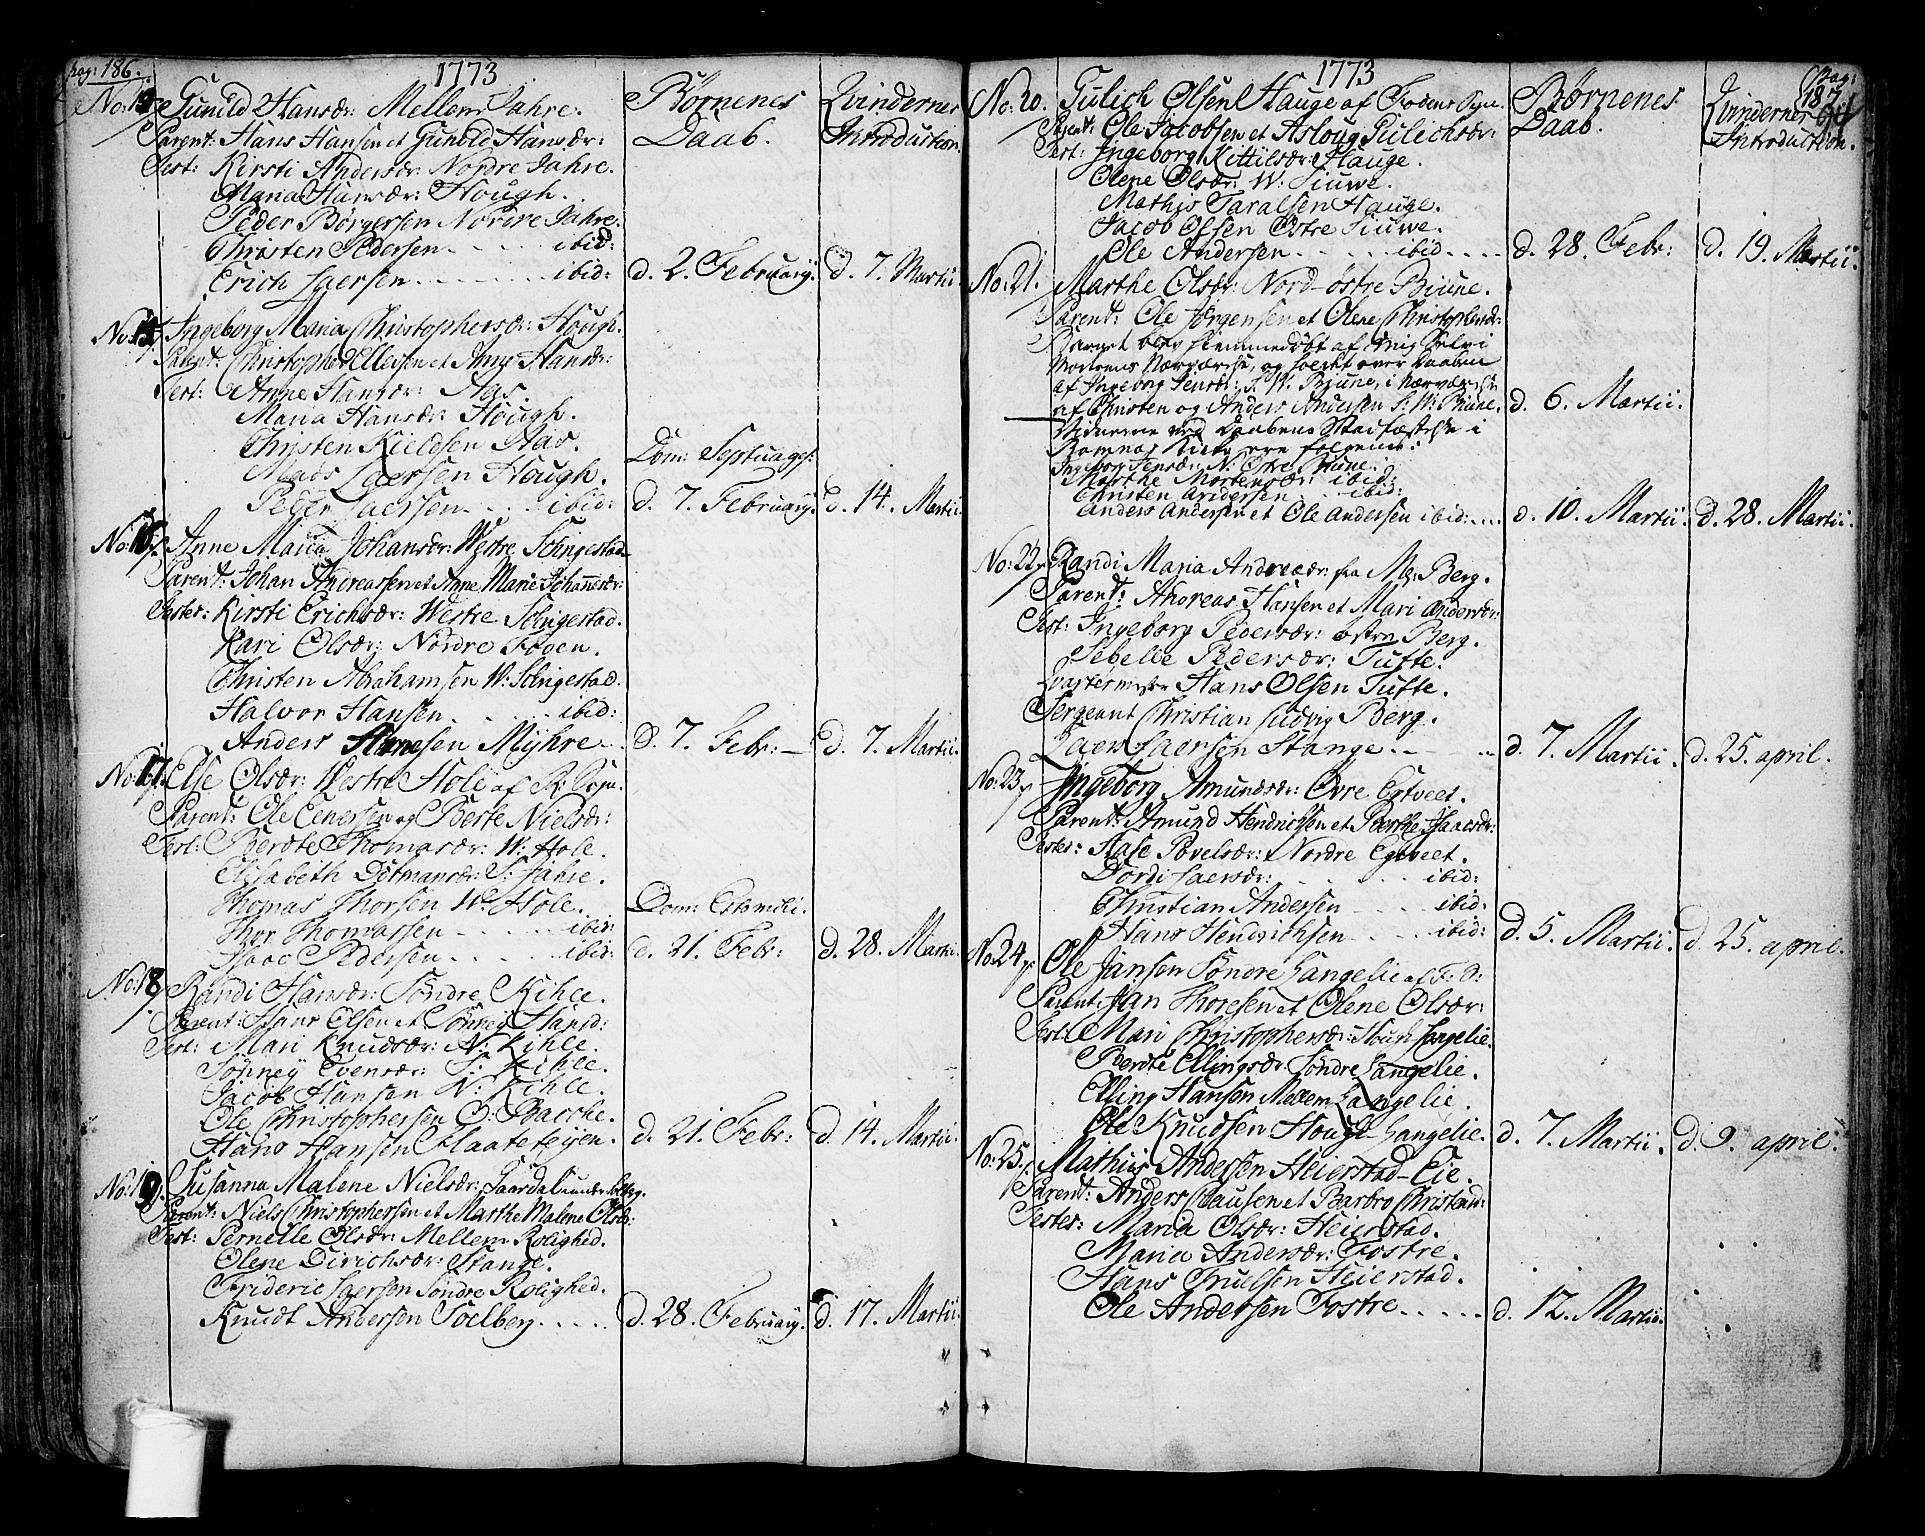 pag: 186.
1773
Børnenes Daab.
Qvindernes Introduction.
Gunild Hansdr: Mellem Jahre.
Parent: Hans Hansen et Gunild Hansdr:
Test: Kirsti Andersdr: Nordre Jahre.
Maria Hansdr: Hough.
Peder Børgersen Nordre Jahre.
Christen Pedersen ibid:
Erich Laersen ibid: d. 2. Februarij. d. 7. Martii.
No: 15. Ingeborg Maria Christophersdr: Hough.
Parent: Christopher Ellefsen et Anne Hansdr:
Test: Anne Hansdr: Aas.
Maria Hansdr: Hough.
Christen Kieldsen Aas.
Dom: Septuages:
Mads Laersen Hough.
Peder Laersen ibid: d. 7. Februarij. d. 14. Martii.
No: 16. Anne Maria Johansdr: Westre Solingestad
Parent: Johan Andreassen et Anne Marie Johannsdr:
Testes: Kirsti Erichsdr: Westre Solingestad.
Kari Olsdr: Nordre Foven.
Christen Abrahamsen W: Solingestad.
Halvor Hansen ibid:
Anders Myhre d. 7. Febr: d. 7. Martii.
No: 17. Else Olsdr: Westre Hole af R: Sogn.
Parent: Ole Enersen og Berte Nielsdr:
Test: Berdte Thomasdr: W: Hole.
Elisabeth Ditmansdr: S: Jahre.
Thomas Thorsen W: Hole. Dom: Estomihi.
Thor Thomassen ibid:
Isaac Pedersen ibid: d. 21. Febr: d. 28. Martii.
No: 18. Randi Hansdr: Søndre Kihle.
Parent: Hans Olsen et Sønney Hansd:
Test: Mari Knudsdr: N: Kihle.
Sønney Evensdr: S: Kihle.
Jacob Hansen N: Kihle.
Ole Christophersen O: Bacche.
Hans Hansen Klaateteijen. d. 21. Febr: d. 14. Martii.
No: 19. Susanna Malene Nielsdr: Gaardal under
Parent: Niels Christophersen et Marthe Malene Olsdr:
Test: Pernelle Olsdr: Mellem Rolighed.
Olene Dirichsdr: Stange.
Frideric Laersen Søndre Rolighed.
Knudt Andersen Solberg d. 28. Februarij. d. 17. Martii.
1773
pag: 187
Børnenes Daab.
Qvindernes Introduction.
No: 20. Gulich Olsen Hauge af Fodens Sogn.
Parent: Ole Jacobsen et Asloug Gulichsdr:
Test: Ingeborg Kittilsdr: Hauge.
Olene Olsdr: W: Siuwe.
Mathis Taralsen Hauge.
Jacob Olsen Østre Siuwe.
Ole Andersen ibid d. 28. Febr: d. 19. Martii.
No: 21. Marthe Olsdr: Nord-østre Biune.
Parent: Ole Jørgensen et Olene Christophersdr:
Barnet blev hiemmedøbt af mig Selv i
Moderens Nærværelse, og holdt over Daaben
af Ingeborg Jensdr: S: W: Biune, i nærværelse
af Christen og Anders Andersen S: W: Biune. d. 6. Martii.
Vidnerne ved Daabens Stadfæstelse i
Ramnes Kirke ere følgende:
Ingeborg Jensdr: N: Østre Biune.
Marthe Mortensdr: ibid:
Christen Andersen ibid:
Anders Andersen et Ole Andersen ibid: d. 10. Martii. d. 28. Martii.
No: 22. Randi Maria Andreædr: fra M: Berg.
Parent: Andreas Hansen et Mari Andersdr:
Test: Ingeborg Pedersdr: østre Berg.
Sebelle Pedersdr: Tufte.
Qvartermester Hans Olsen Tufte.
Sergeant Christian Ludvig Berg.
Laers Laersen Stange d. 7. Martii. d. 25. april.
No: 23. Ingeborg Amundsdr: Øvre Egtveet.
Parent: Amund Hendrichsen et Berthe Isaacsdr:
Testes: Aase Povelsdr: Nordre Egtveet.
Dordi Laersdr: ibid:
Christian Andersen ibid:
Hans Hendrichsen ibid: d. 5. Martii. d. 25. april.
No: 24. Ole Jansen Søndre Langelie af F: S:
Parent: Jan Thoresen et Olene Olsdr:
Test: Mari Christophersdr: Houg Langelie.
Berdte Ellingsdr: Søndre Langelie.
Elling Hansen Mellem Langelie.
Ole Knudsen Hough Langelie. d. 7. Martii. d. 9. april.
No: 25. Mathias Andersen Heierstad-Eie.
Parent: Anders Clausen et Barbro Christensd:
Testes: Maria Olsdr: Heierstad.
Maria Andersdr: Fostre.
Hans Truelsen Heierstad.
Ole Andersen Fostre d. 12. Martii.